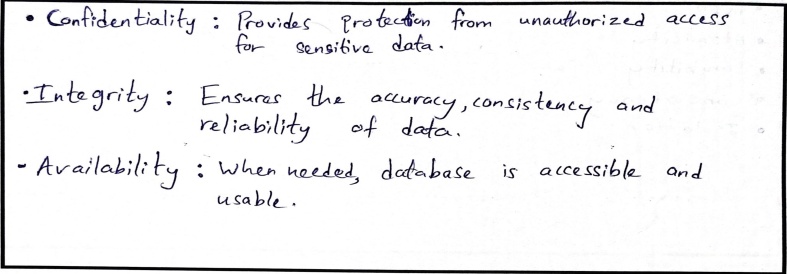 • Confidentiality : Provides protection from unauthorized access
for sensitive data.
• Integrity : Ensures the accuracy, consistency and
reliability of data.
- Availability : When needed, database is accessible and
usable.